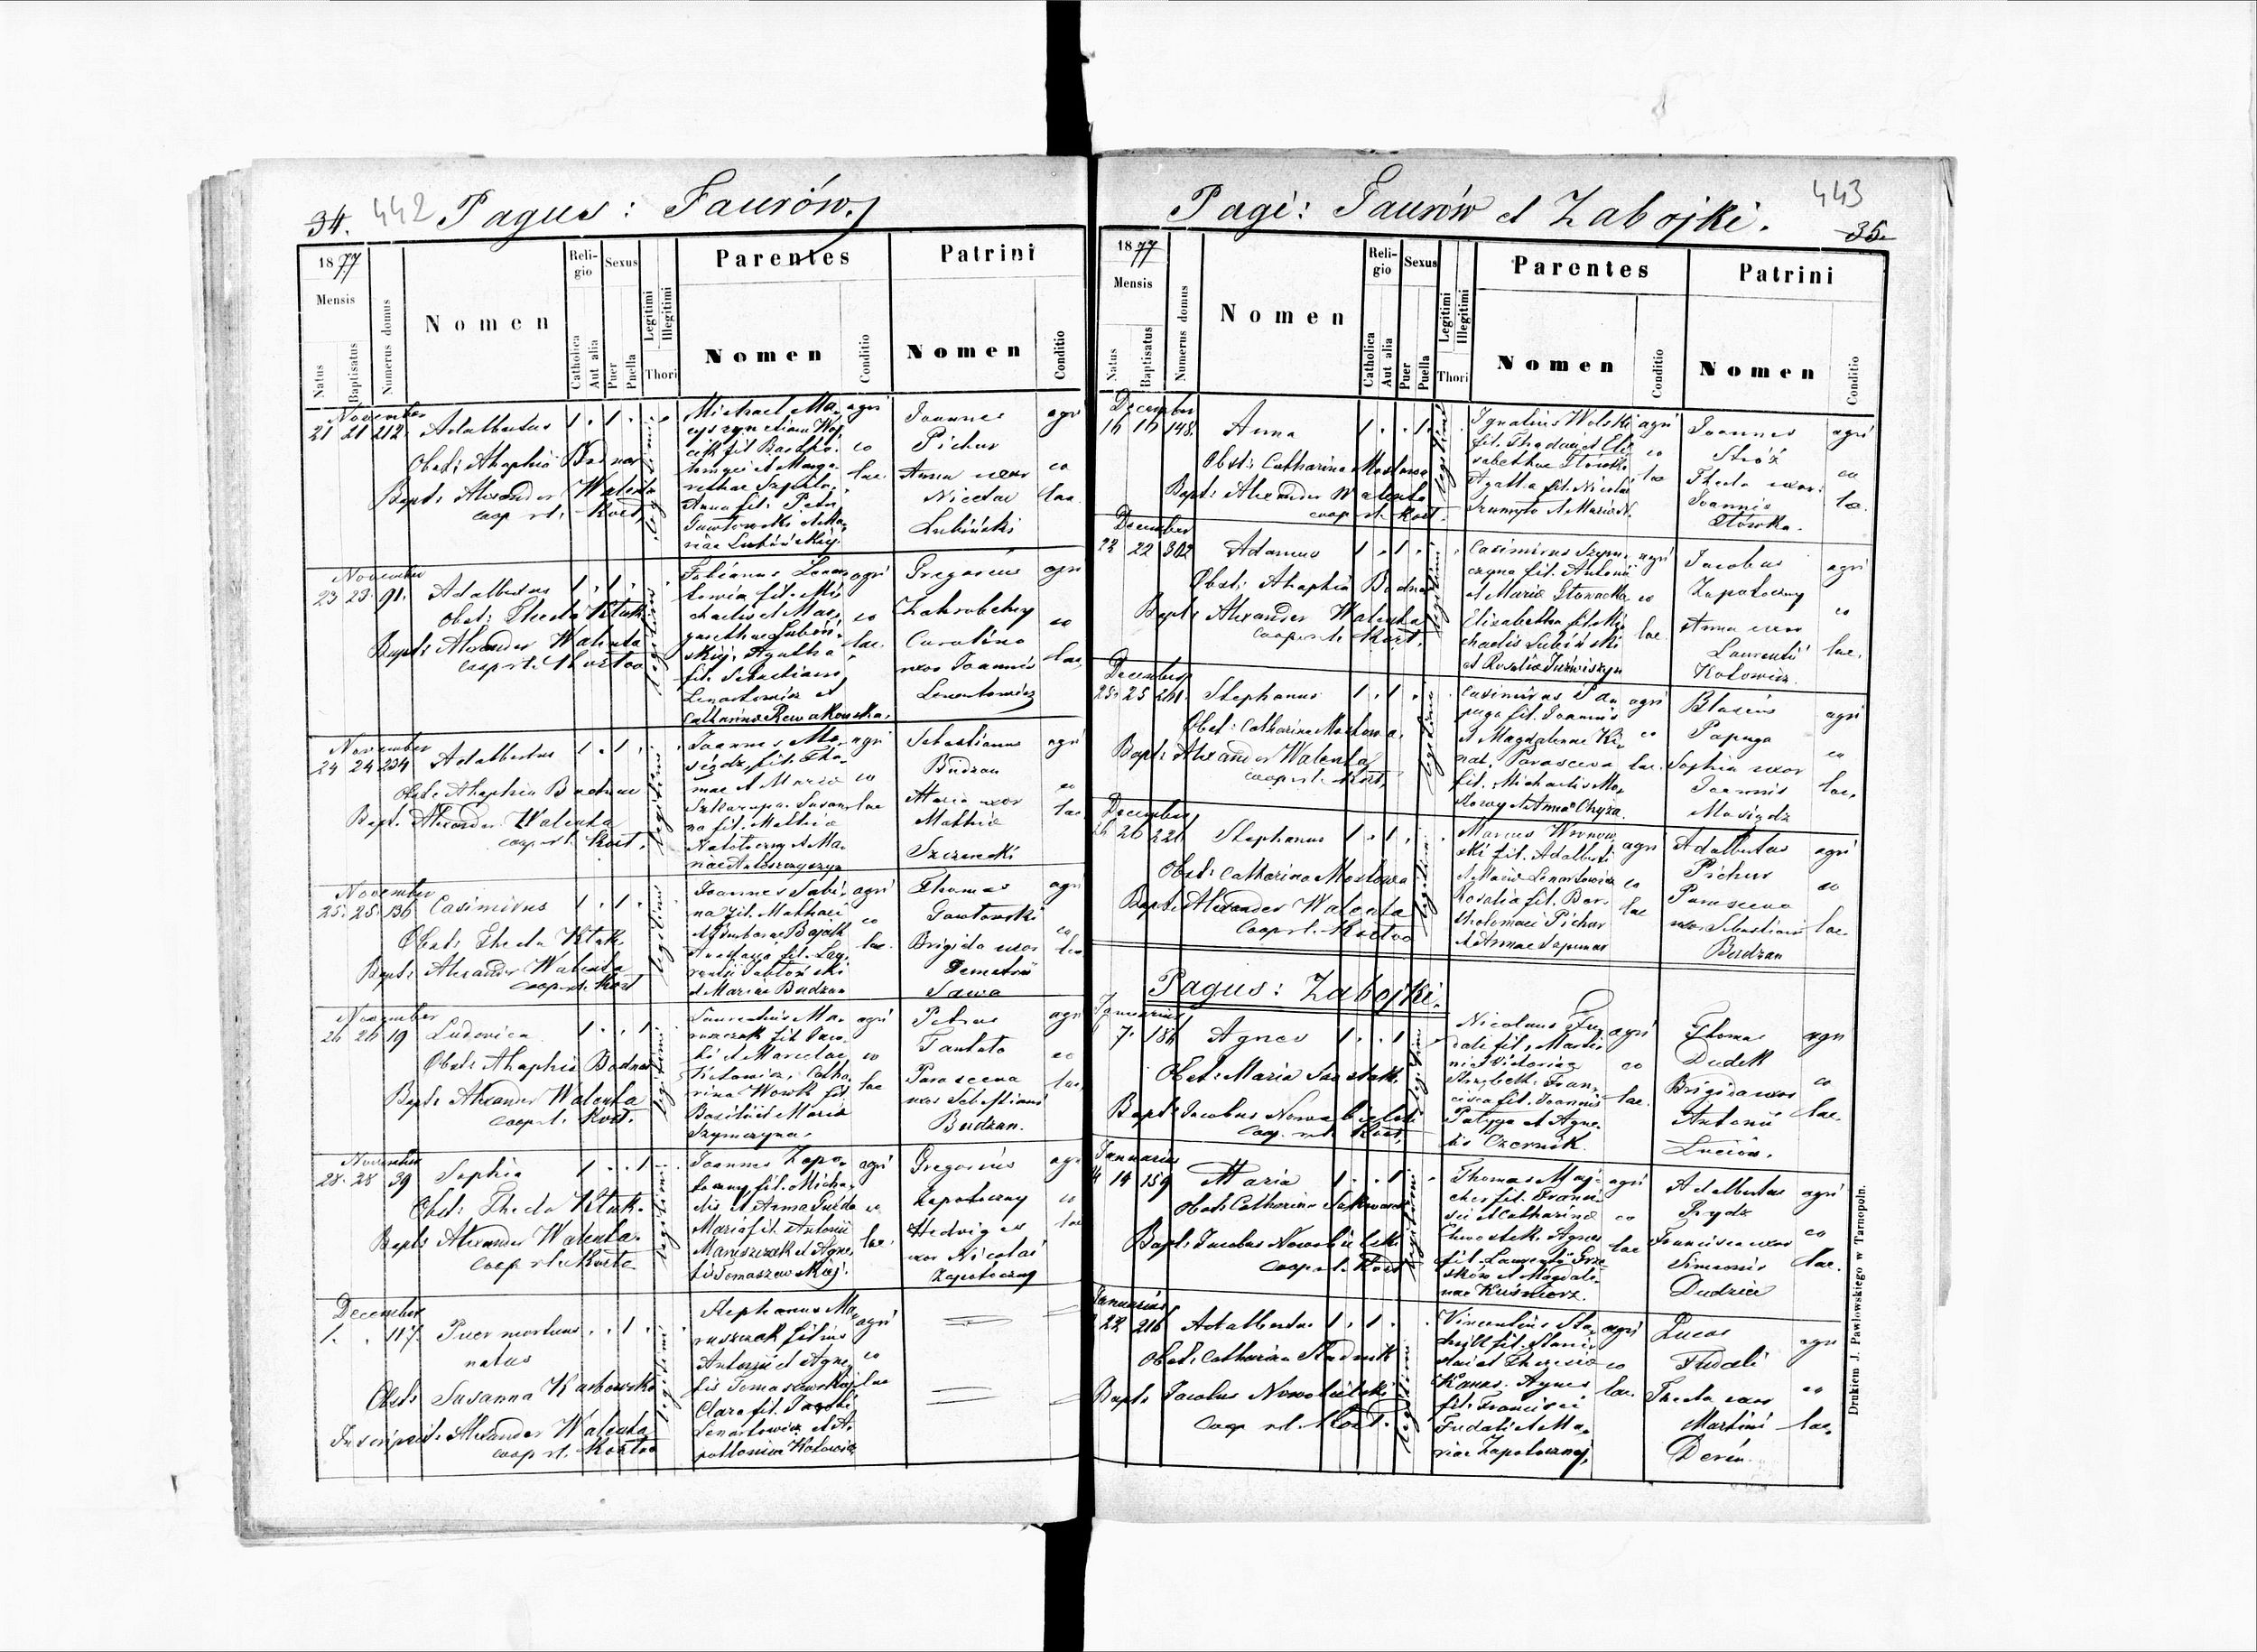 34. 442 Pagus: Taurów
1877
Mensis
Natus
Baptisatus
Numerus domus
Nomen
Religio
Catholica
Aut alia
Sexus
Puer
Puella
Legitimi
Illegitimi
Thori
Parentes
Nomen
Conditio
Patrini
Nomen
Conditio
November
21 21 212 Adalbertus 1 . 1 .
Obst: Ahaphia Bodnar
Bapt: Alexander Walenta
coop. rl. Kozl.
Michael
fil.
Anna fil. Petri
Gawłowski et Ma
riae Lubińskiej
agri
co
lae
Joannes
Pichur
Anna uxor
Nicolai
Lubiński
agri
co
lae
November
23 23 91. Adalbertus 1 . 1 .
Obst: Thecla Ktuk
Bapt: Alexander Walenta
coop. rl. Kozlov
Fabianus Lenar
towicz fil. Mi
chaelis et Mar
garethae Lubiń
skiej, Agatha
fil. Sebastiani
Lenartowicz et
Catharinae Rewakowska.
agri
co
lae.
Gregorius
Zahrobelny
Carolina
uxor Joannis
Lenartowicz
agri
co
lae.
November
24 24 234 Adalbertus 1 . 1 .
Obst: Ahaphia Bodnar
Bapt. Alexander Walenta
coop. rl. Kozl.
Joannes Ma
siądz, fil. Tho
mae et Maria
Susan
na fil. Mathiae
et Ma
riae
agri
co
lae
Sebastianus
Budzan
Maria uxor
Mathiae
agri
co
lae
November
25. 25. 136 Casimirus 1 . 1 .
Obst: Thecla Ktuk.
Bapt: Alexander Walenta
coop. rl. Kozl
Joannes Sabi
na fil. Mathaei
et Barbarae Bajok
Anastasia fil. Lau
rentii Jabłoński
et Mariae Budzan
agri
co
lae.
Thomas
Gawłowski
Brigida uxor
Demetrii
Sawa
agri
co
lae
November
26 26 19 Ludovica 1 . . 1
Obst: Ahaphia Bodnar
Bapt: Alexander Walenta
coop. rl. Kozl.
Laurentius Ma
ruszczak fil. Jaco
bi et Marcelae
Kotowicz, Catha
rina Wowk fil.
Basilii et Maria
Szymczyna.
agri
co
lae
Petrus
Parascena
uxor Sebastiani
Budzan.
agri
co
lae.
November
28. 28 39 Sophia 1 . . 1
Obst: Thecla Ktuk.
Bapt: Alexander Walenta.
coop. rl.
Joannes Zapo
toczny fil. Micha
elis et Anna
Maria fil. Antonii
Maruszczak et Agne
tis Tomaszewskiej.
agri
co
lae.
Gregorius
Zapotoczny
Hedvigis
uxor Nicolai
Zapotoczny
agri
co
lae
December
1. . 117 Puer mortuus . . 1 .
natus
Obst: Susanna Karbowska
Inscripsit: Alexander Walenta
coop rl. Kozlov
Stephanus Ma
ruszczak filius
Antonii et Agne
tis Tomaszewskiej
Clara fil. Jacobi
Lenartowicz et A
polloniae Kotowicz
agri
co
lae
Pagi: Taurów et Zabojki. 443
35.
1877
Mensis
Natus
Baptisatus
Numerus domus
Nomen
Religio
Catholica
Aut alia
Sexus
Puer
Puella
Legitimi
Illegitimi
Thori
Parentes
Nomen
Conditio
Patrini
Nomen
Conditio
December
16 16 148. Anna 1 . . 1
Obst: Catharina Mostowa
Bapt: Alexander Walenta
coop. rl. Kozl.
Ignatius Wolski
fil. Thadaei et Eli
sabethae
Agatha fil. Nicolai
et Mariae
agri
co
lae
Joannes
Stróż
Thecla uxor
Joannis
Stówka.
agri
co
lae.
December
22 22 302 Adamus 1 . 1 .
Obst: Ahaphia Bodnar
Bapt: Alexander Walenta
coop. rl. Kozl.
Casimirus Szym
czyna fil. Antonii
et Maria Słowacka
Elisabetha fil. Mi
chaelis Lubiński
et Rosaliae
agri
co
lae.
Jacobus
Zapotoczny
Anna uxor
Laurentii
Kotowicz.
agri
co
lae.
December
25. 25 261. Stephanus 1 . 1 .
Obst: Catharina Mostowa.
Bapt: Alexander Walenta
coop. rl. Kozl.
Casimirus Pa
puga fil. Joannis
et Magdalenae
Parascena
fil. Michaelis
et Anna Chyża.
agri
co
lae.
Blasius
Papuga
Sophia uxor
Joannis
Masiądz
agri
co
lae.
December
26 26 221 Stephanus 1 . 1 .
Obst: Catharina Mostowa
Bapt: Alexander Walenta
Coop. rl. Kozlov
Marcus
ski fil. Adalberti
et Maria Lenartowicz
Rosalia fil. Bar
tholomaei Pichur
et Annae Sapunar
agri
co
lae
Adalbertus
Pichur
Parascena
uxor Sebastiani
Budzan
agri
co
lae.
Pagus: Zabojki.
Januarius
7. 186 Agnes 1 . . 1
Obst: Maria
Bapt: Jacobus Nowobielski
coop. rl. Kozl.
Nicolaus Fu
dali fil. Marti
ni et Victoriae
Fran
cisca fil. Joannis
Patyga et Agne
tis Czernik.
agri
co
lae.
Thomas
Dudek
Brigida uxor
Antonii
agri
co
lae.
Januarius
14 159 Maria 1 . . 1
Obst: Catharina
Bapt: Jacobus Nowobielski
coop. rl. Kozl
Thomas Maj
cher fil. Franci
sci et Catharinae
Chwostek. Agnes
fil. Laurentii Grze
sków et Magdale
nae Kuśnierz.
agri
co
lae
Adalbertus
Rydz
Francisca uxor
Simeonis
agri
co
lae.
Januarius
22 216 Adalbertus 1 . 1 .
Obst: Catharina Studnik
Bapt: Jacobus Nowobielski
Coop rl. Kozl.
Vincentius
fil. Stanis
lai et Theresiae
Kanas. Agnes
fil. Francisci
Fudali et Ma
riae Zapotocznej.
agri
co
lae.
Lucas
Fudali
Thecla uxor
Martini
Dereń.
agri
co
lae.
Drukiem J. Pawłowskiego w Tarnopolu.